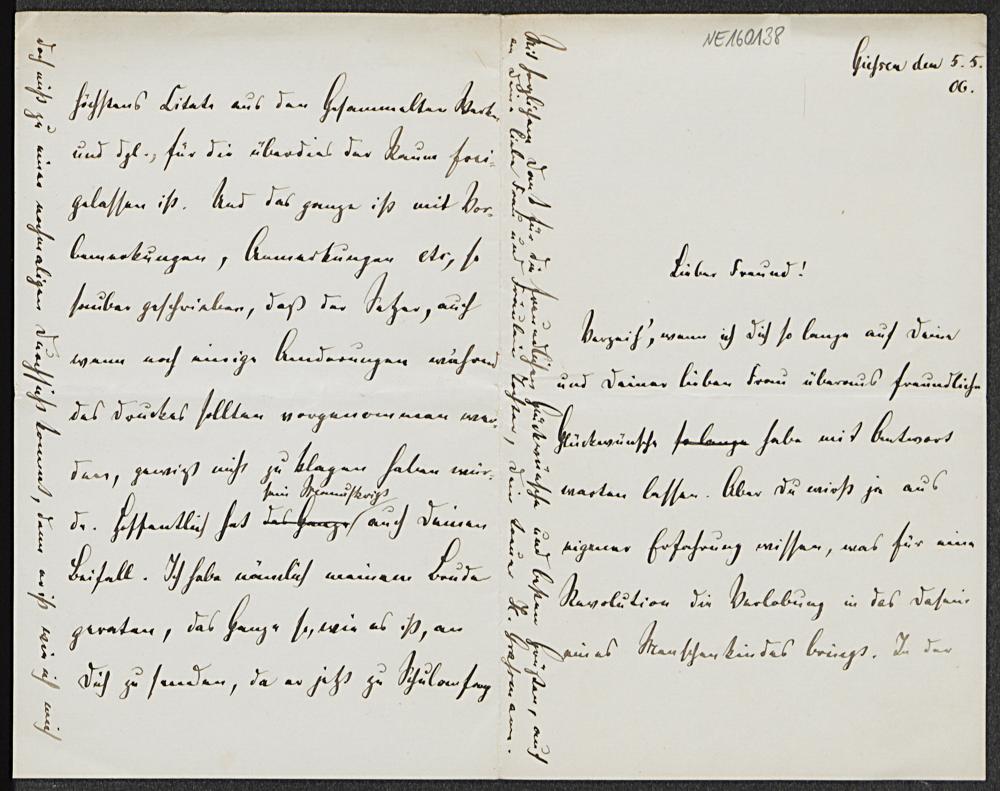 NE160138
Giessen den 5. 5.
06.
Lieber Freund!
Verzeih', wenn ich Dich so lange auf Deine
und Deiner lieben Frau überaus freundliche
Glückwünsche so lange habe mit Antwort
warten lassen. Aber Du wirst ja aus
eigener Erfahrung wissen, was für eine
Revolution die Verlobung in das Dasein
eines Menschenkindes bringt. In der
höchstens Citate aus den Gesammelten Werken
und dgl., für die überdies der Raum frei-
gelassen ist. Und das ganze ist mit Vor-
bemerkungen, Anmerkungen etc, so
sauber geschrieben, daß der Setzer, auch
wenn noch einige Änderungen während
des Druckes sollten vorgenommen wer-
den, gewiß nicht zu klagen haben wür-
sein Manuskript
de. Hoffentlich hat das Ganze auch Deinen
Beifall. Ich habe nämlich meinem Bruder
geraten, das Ganze so, wie es ist, an
Dich zu senden, da er jetzt zu Schulanfang
doch nicht zu einer nochmaligen Durchsicht kommt, denn er ist wie ich mich
Mit herzlichem Dank für die freundlichen Glückwünsche und besten Grüßen, auch
an Deine liebe Frau und Fräulein Tochter, Dein treuer H. Graßmann.